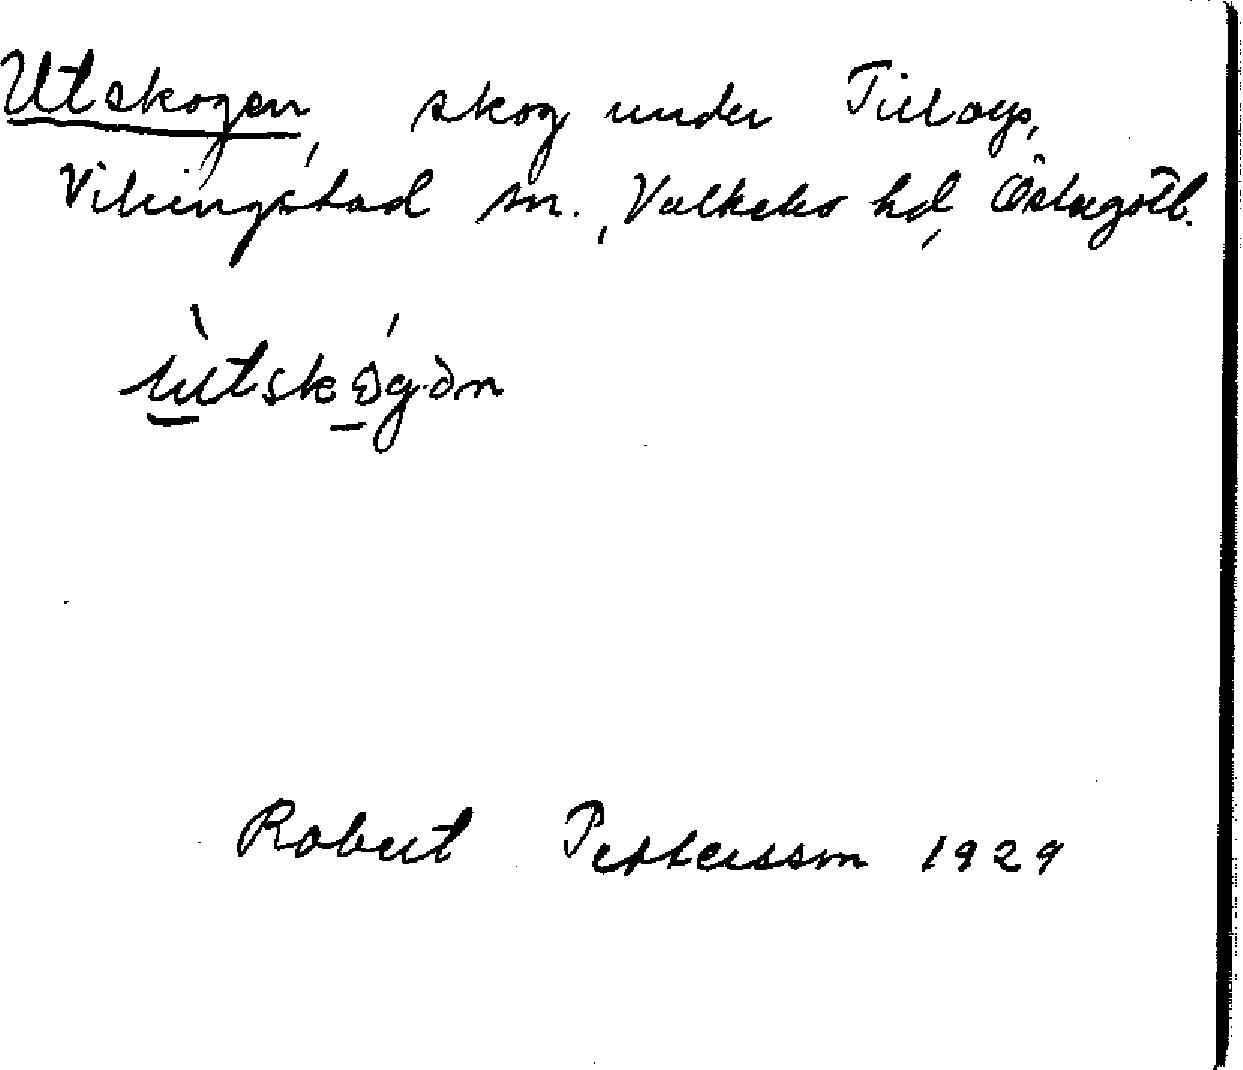 Utskogen, skog under Tillorp,
Vikingstad sn., Valkebo hd, Östergötl.
ùtskógən
Robert Pettersson 1929